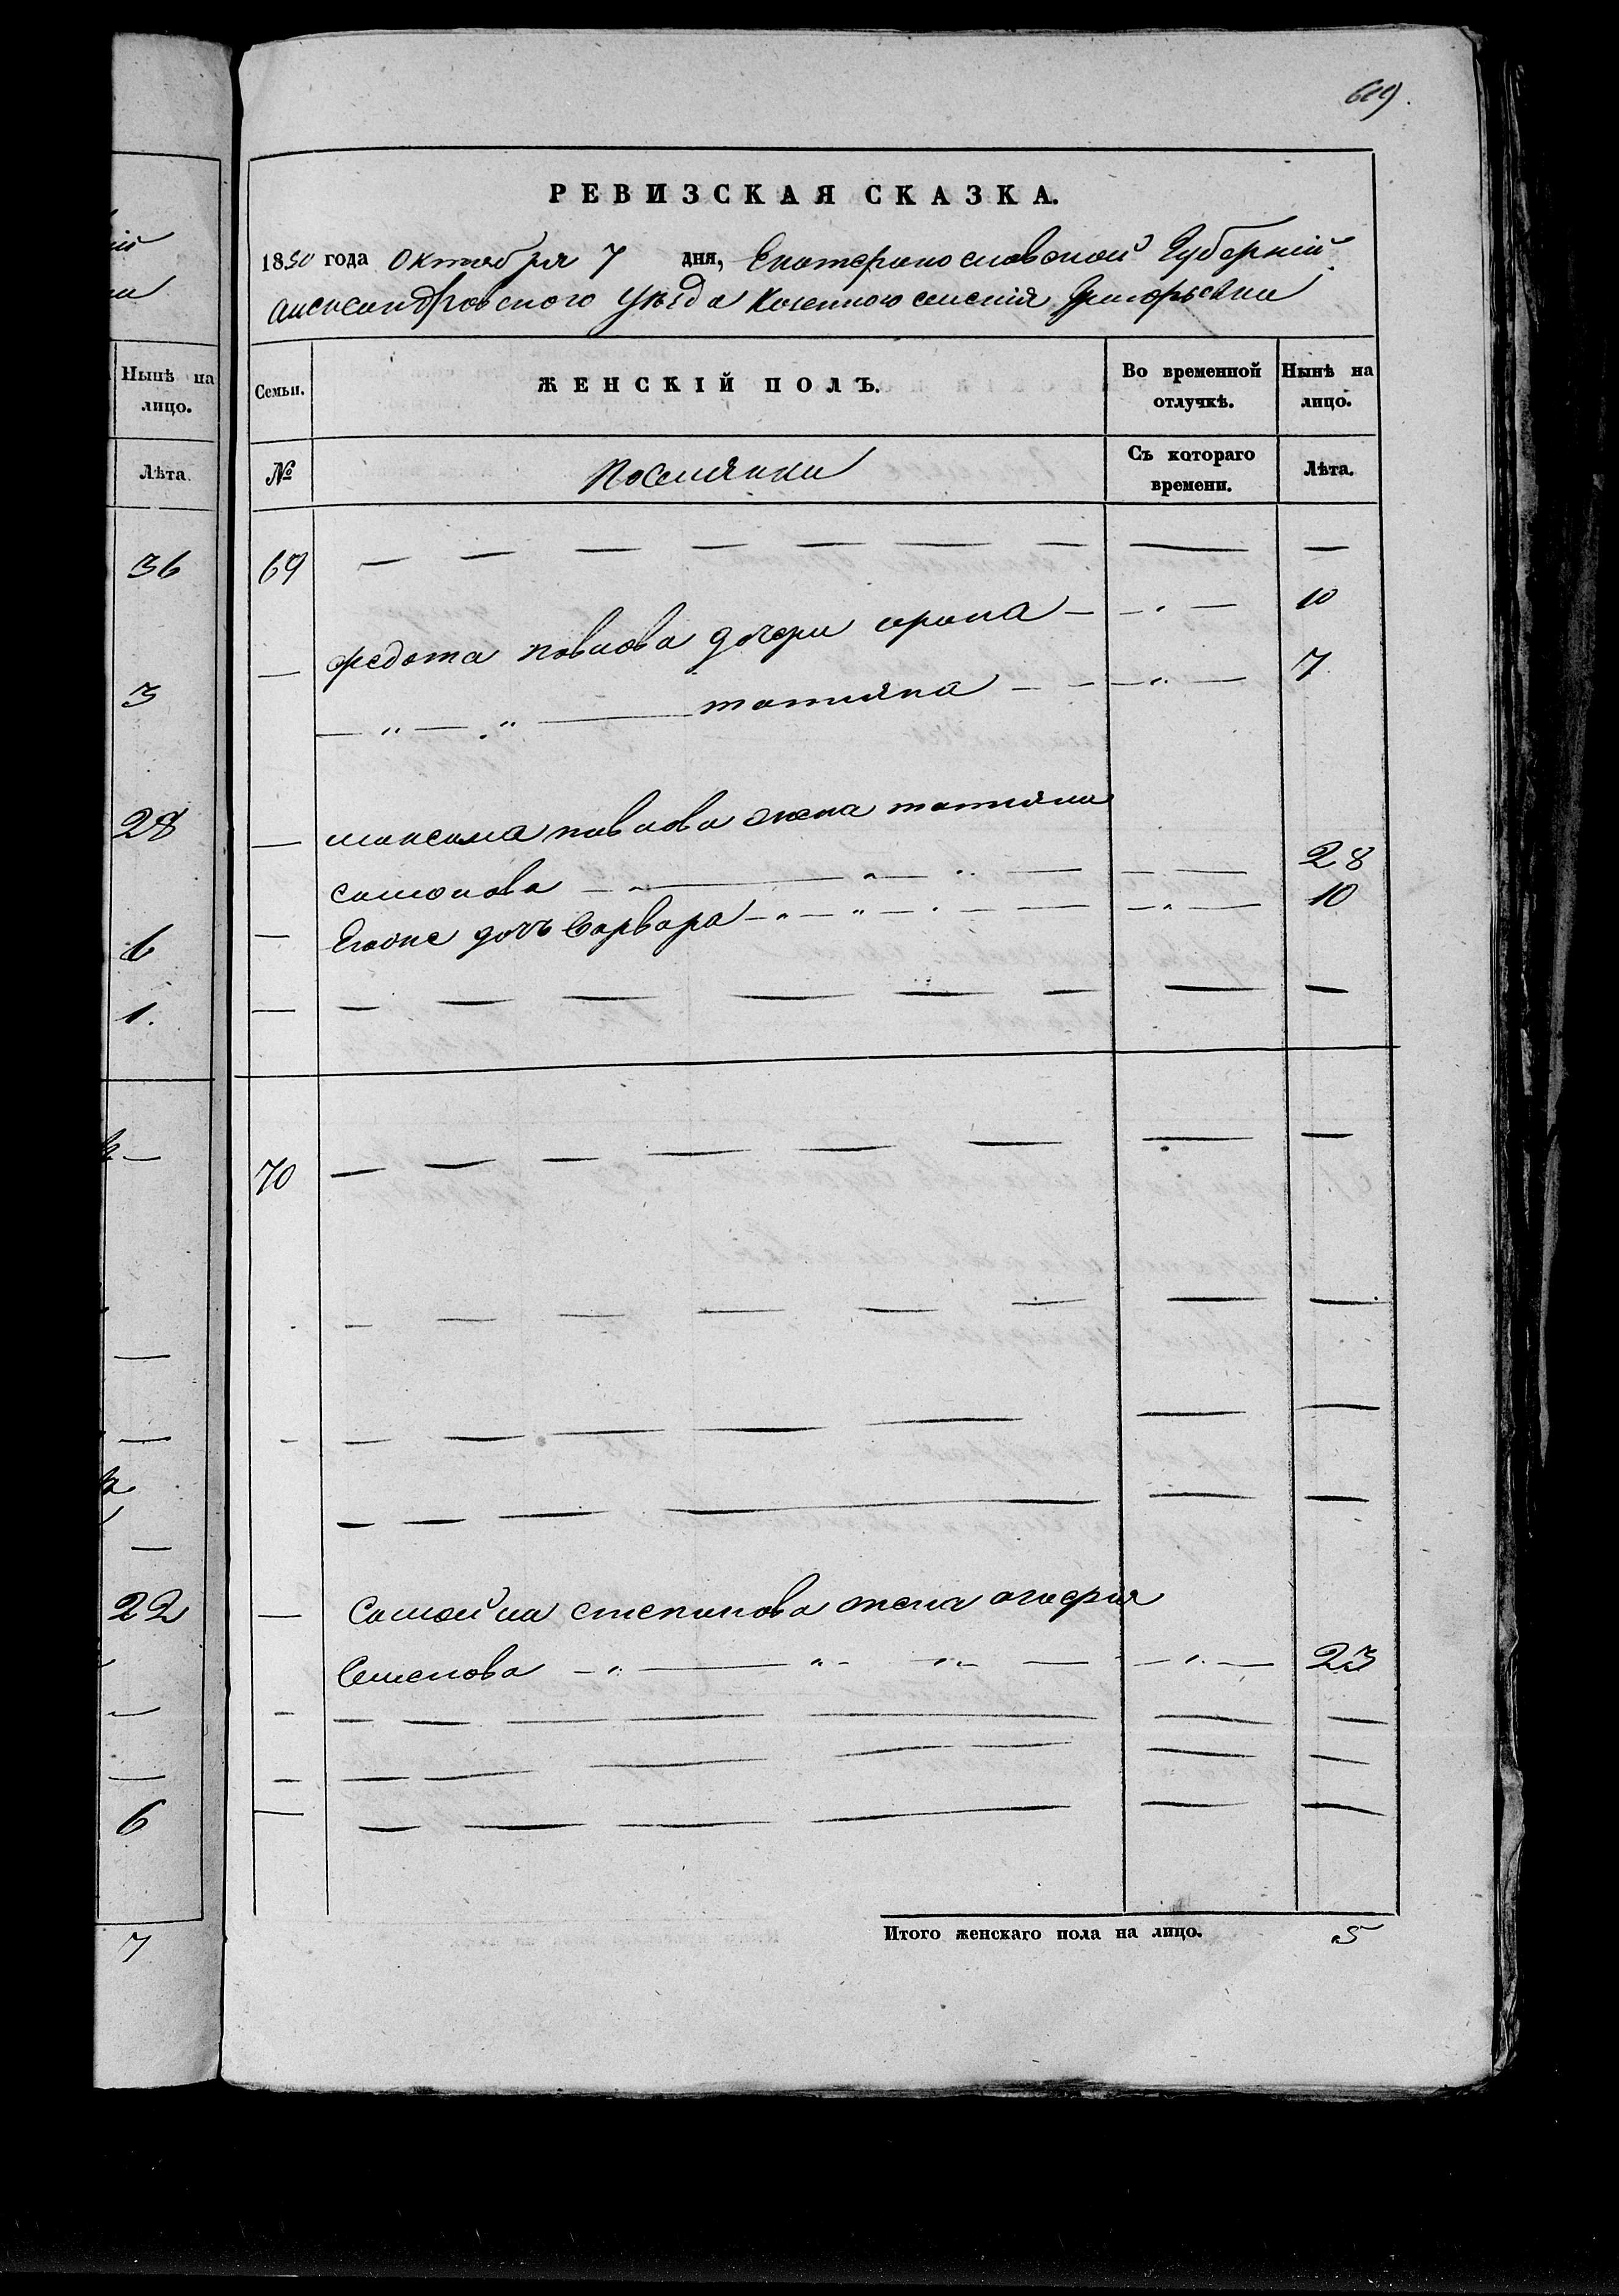 609.
РЕВИЗСКАЯ СКАЗКА.
1850 года Октября 7 дня, Екатеринославской Губерніи
Александровского уѣзда Казенного селенія Григорьевки
Семьи.
ЖЕНСКІЙ ПОЛЪ.
Во временной отлучкѣ.
Нынѣ на лицо.
№
Поселянки
Съ котораго времени.
Лѣта.
69 — — — — — — — — —
— федота павлова дочери ирина — — „ — 10
— „ — „ — татияна — — — „ — 7
— максима павлова жена татияна
самойлова — „ — „ — „ — — — 28
— Егоже дочь варвара — „ — „ — — „ — 10
— — — — — — — — —
70 — — — — — — — —
— — — — — — — —
— — — — — — — —
— — — — — — —
— Самойла степанова жена агафія
Семенова — „ — „ — „ — — „ — 23
— — — — — — — —
— — — — — — — —
— — — — — — —
Итого женскаго пола на лицо. 5
Нынѣ на лицо.
Лѣта
36
3
28
6
1.
—
—
—
—
22
—
—
6
7